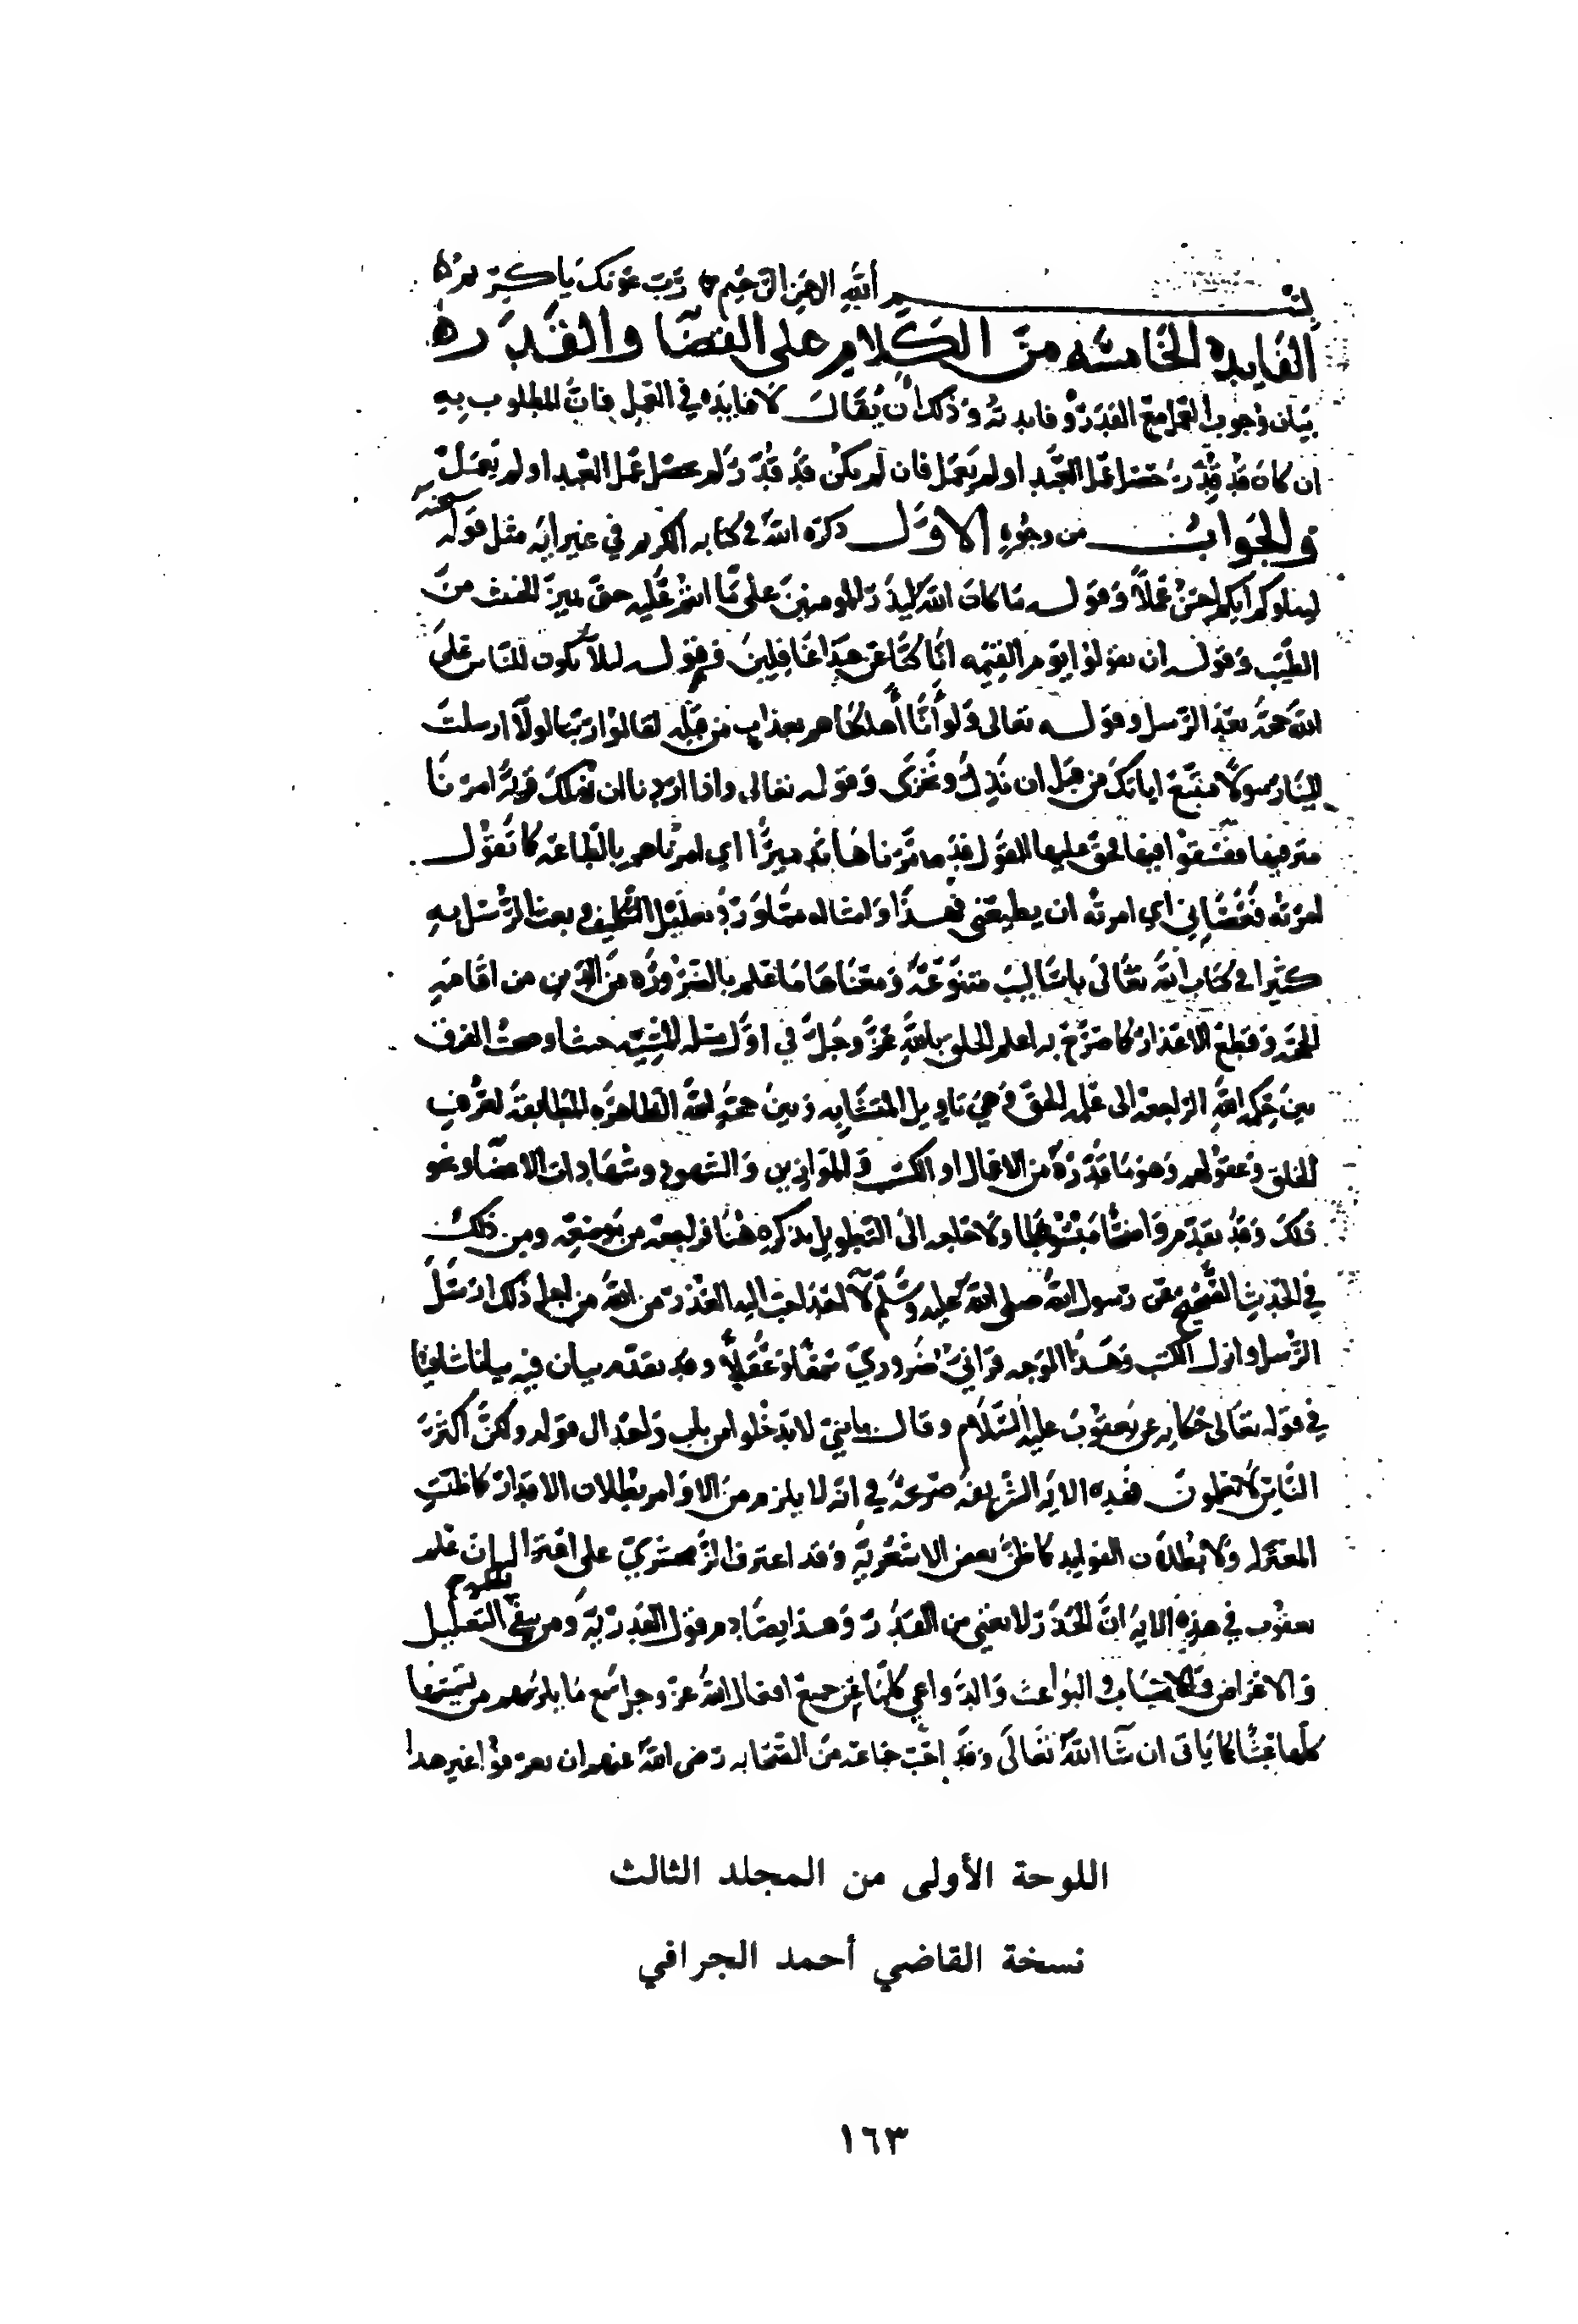 بســـم الله الرحمن الرحيم رب عونك يا كريم
الفايده الخامسه من الكلام على القضا والقدر
بيان وجوب العمل مع القدر وفايدته وذلك ان يقال لا فايده في العمل فان المطلوب به
ان كان قد قدر حصل عمل العبد او لم يعمل فان لم يكن قد قدر لم يحصل عمل العبد او لم يعمل
والجواب من وجوه الاول ذكره الله في كتابه الكريم في غير ايه مثل قوله سبحنه
ليبلوكم ايكم احسن عملا وقوله ما كان الله ليذر المومنين على ما انتم عليه حتى يميز الخبيث من
الطيب وقوله ان تقولوا يوم القيمه انا كنا عن هذا غافلين وقوله ليلا يكون للناس على
الله حجة بعد الرسل وقوله تعالى ولو أنا أهلكناهم بعذاب من قبله لقالوا ربنا لولا ارسلت
الينا رسولا فنتبع اياتك من قبل ان نذل ونخزى وقوله تعالى واذا اردنا ان نهلك قرية امرنا
مترفيها ففسقوا فيها فحق عليها القول فدمرناها تدميرا اي امرناهم بالطاعة كما تقول
امرته فعصاني اي امرته ان يطيعني فهذا وامثاله مما ورد تعليل التكليف وبعث الرسل به
كثيرا في كتاب الله تعالى باساليب متنوعة ومعناها ما علم بالضروره من الدين من اقامه
الحجه وقطع الاعذار كما صرح به اعلم الخلق بالله عز وجل في اول مسله المشييه حيث اوضحت الفرق
بين حكمه الله الراجعة الى علمه الحق وهي تاويل المتشابه وبين حجة الله الظاهره المطابقة لعرف
الخلق وعقولهم وهو ما قدره من الاعمال او الكتب والموازين والشهود وشهادات الاعضا ونحو
ذلك وقد تقدم واضحا مبسوطا ولا حاجه الى التطويل بذكره هنا فراجعه من موضعه ومن ذلك
في الحديث الصحيح عن رسول الله صلى الله عليه وسلم لا احد احب اليه العذر من الله من اجل ذلك ارسل
الرسل وانزل الكتب وهذا الوجه قراني ضروري سمعا وعقلا وقد تقدم بيان فيه بيانا شافيا
في قوله تعالى حكايه عن يعقوب عليه السلام وقال يا بني لا تدخلوا من باب واحد الى قوله ولكن اكثر
الناس لا يعلمون فهذه الايه الشريفه صريحة في انه لا يلزم من الاوامر بطلان الاقدار كما ظنت
المعتزله ولا بطلان الفوايد كما ظن بعض الاشعريه وقد اعترف الزمخشري على اعتزاله ان علم
يعقوب في هذه الايه ان الحذر لا يغني من القدر وهذا يصادم قول القدريه ومن ينفي التعليل
والاغراض والاسباب والبواعث والدواعي كلها عن جميع افعال الله عز وجل مع ما يلزمهم من تسميتها
كلها عبثا كما ياتي ان شا الله تعالى وقد احب جماعة من الصحابه رضى الله عنهم ان يعرفوا غير هذا
اللوحة الأولى من المجلد الثالث
نسخة القاضي أحمد الجرافي
١٦٣